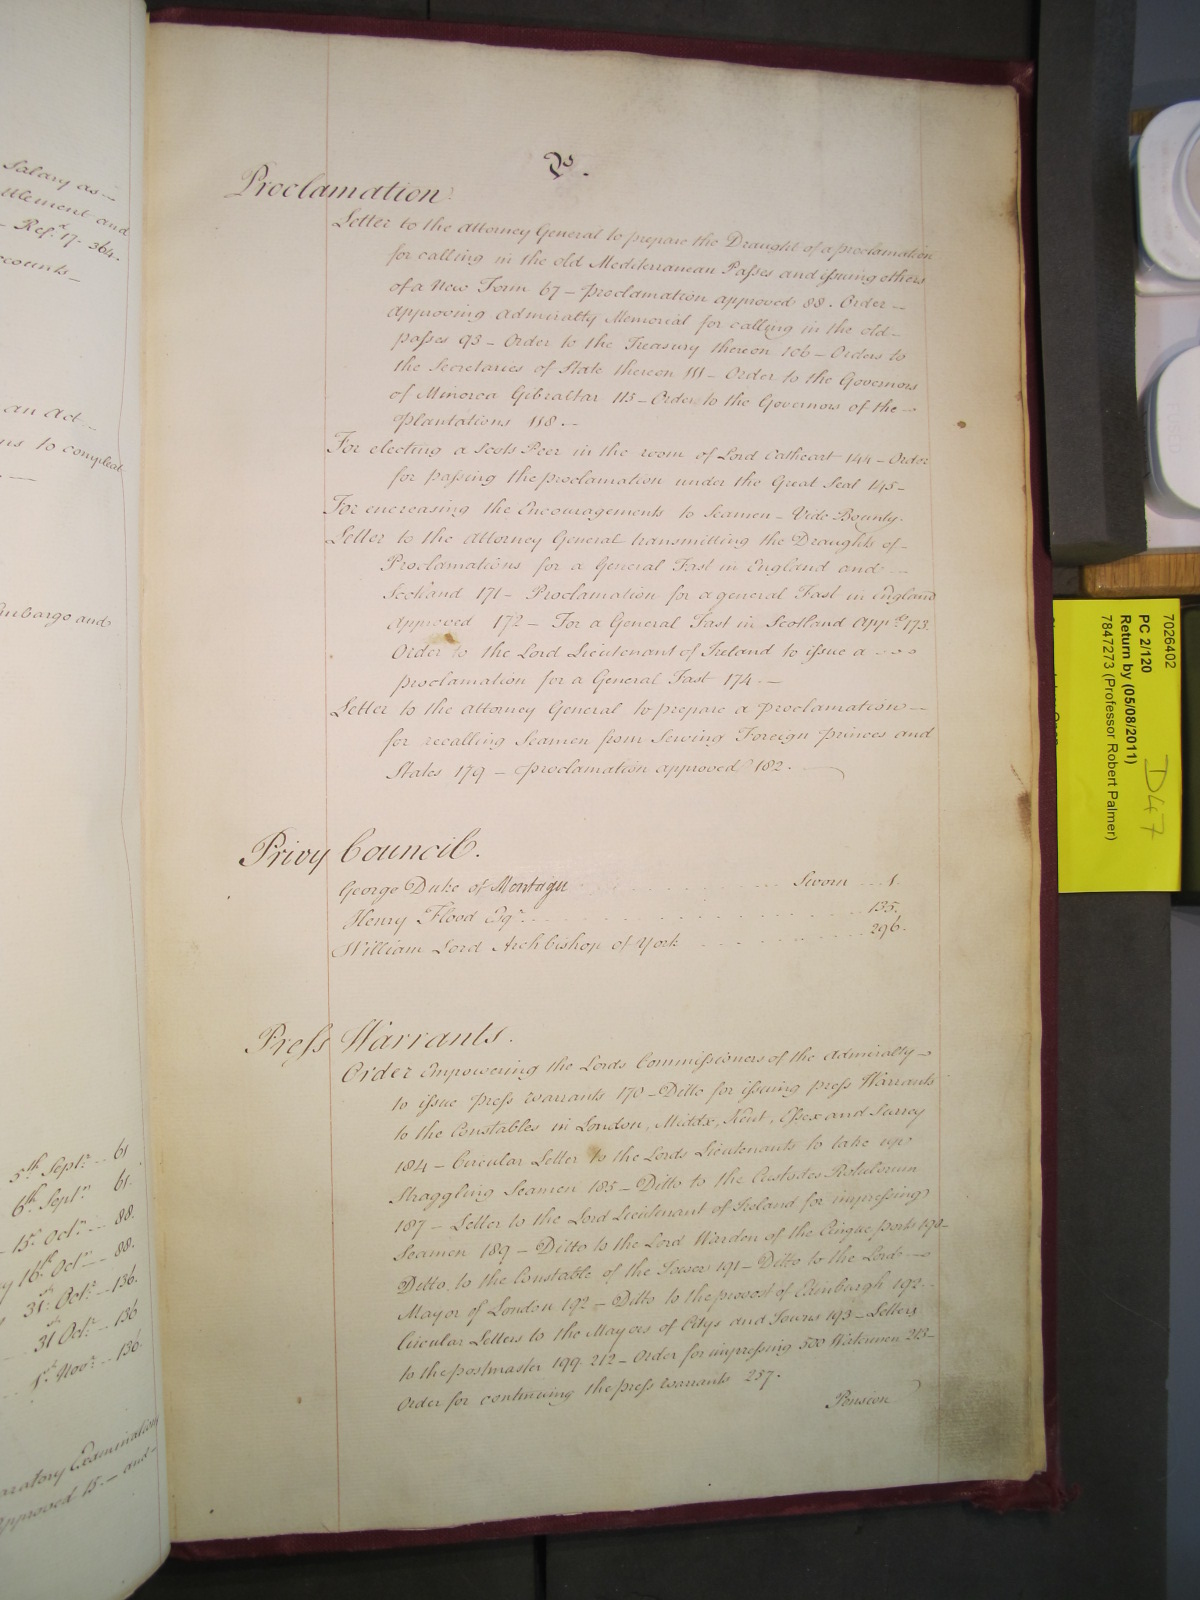 Salary as
ttlement and
Ref.d 17. 364.
ccounts
an Act
ns to compleat
mbargo and
5th Septr 61
6th Septr 61.
15th Octr 88.
16th Octr 88.
31st Octr 136.
31st Octr 136
1st Novr 136.
aratory Examination
approved 15 and
P.
Proclamation.
Letter to the Attorney General to prepare the Draught of a proclamation
for calling in the old Mediterranean Passes and issuing others
of a New Form 67 - proclamation approved 88. Order
approving Admiralty Memorial for calling in the old
passes 93 - Order to the Treasury thereon 106 - Orders to
the Secretaries of State thereon 111 - Order to the Governors
of Minorca Gibraltar 113 - Order to the Governors of the
Plantations 118.
For electing a Scots Peer in the room of Lord Cathcart 144 - Order
for passing the proclamation under the Great Seal 145 -
For encreasing the Encouragements to Seamen - Vide Bounty.
Letter to the Attorney General transmitting the Draughts of
Proclamations for a General Fast in England and
Scotland 171 - Proclamation for a general Fast in England
approved 172 - For a General Fast in Scotland App.d 173.
Order to the Lord Lieutenant of Ireland to issue a
proclamation for a General Fast 174.
Letter to the Attorney General to prepare a proclamation
for recalling Seamen from Serving Foreign princes and
States 179 - proclamation approved 182.
Privy Council.
George Duke of Montagu Sworn 1.
Henry Flood Esqr. 135.
William Lord Archbishop of York 296.
Press Warrants.
Order Empowering the Lords Commissioners of the Admiralty
to issue press warrants 170 - Ditto for issuing press Warrants
to the Constables in London, Middx, Kent, Essex and Surrey
184 - Circular Letter to the Lords Lieutenants to take up
Straggling Seamen 185 - Ditto to the Custodes Rotulorum
187 - Letter to the Lord Lieutenant of Ireland for impressing
Seamen 189 - Ditto to the Lord Warden of the Cinque ports 190 -
Ditto to the Constable of the Tower 191 - Ditto to the Lord
Mayor of London 192 - Ditto to the provost of Edinburgh 192 -
Circular Letters to the Mayors of Citys and Towns 193 - Letters
to the postmaster 199. 212 - Order for impressing 500 Watermen 213 -
Order for continuing the press warrants 257.
Pension
7026402
PC 2/120
Return by (05/08/2011)
7847273 (Professor Robert Palmer)
D47